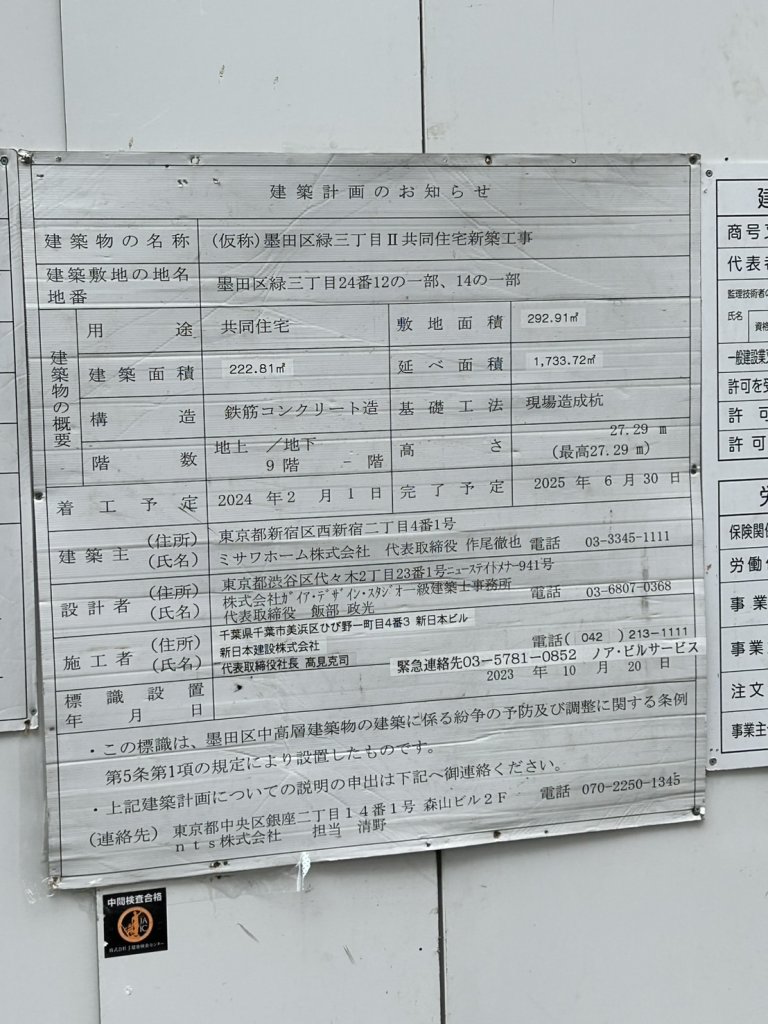 建築計画のお知らせ
建築物の名称 (仮称)墨田区緑三丁目Ⅱ共同住宅新築工事
建築敷地の地名地番 墨田区緑三丁目24番12の一部、14の一部
建築物の概要
用途 共同住宅 敷地面積 292.91㎡
建築面積 222.81㎡ 延べ面積 1,733.72㎡
構造 鉄筋コンクリート造 基礎工法 現場造成杭
階数 地上 9階 /地下 - 階 高さ 27.29 m (最高27.29 m)
着工予定 2024 年 2 月 1 日 完了予定 2025 年 6 月 30 日
建築主 (住所) 東京都新宿区西新宿二丁目4番1号
(氏名) ミサワホーム株式会社 代表取締役 作尾徹也 電話 03-3345-1111
設計者 (住所) 東京都渋谷区代々木2丁目23番1号ニューステイトメナー941号
(氏名) 株式会社ガイア・デザイン・スタジオ一級建築士事務所 電話 03-6807-0368
代表取締役 飯部 政光
施工者 (住所) 千葉県千葉市美浜区ひび野一町目4番3 新日本ビル
(氏名) 新日本建設株式会社 電話( 042 )213-1111
代表取締役社長 高見克司 緊急連絡先03-5781-0852 ノア・ビルサービス
標識設置年月日 2023 年 10 月 20 日
・この標識は、墨田区中高層建築物の建築に係る紛争の予防及び調整に関する条例
第5条第1項の規定により設置したものです。
・上記建築計画についての説明の申出は下記へ御連絡ください。
(連絡先) 東京都中央区銀座二丁目14番1号 森山ビル2F 電話 070-2250-1345
nts株式会社 担当 清野
中間検査合格
JA
IC
建
商号又
代表者
監理技術者の
氏名
資格
一般建設業
許可を受
許可
許可
労
保険関係
労働保
事業
事業
注文
事業主